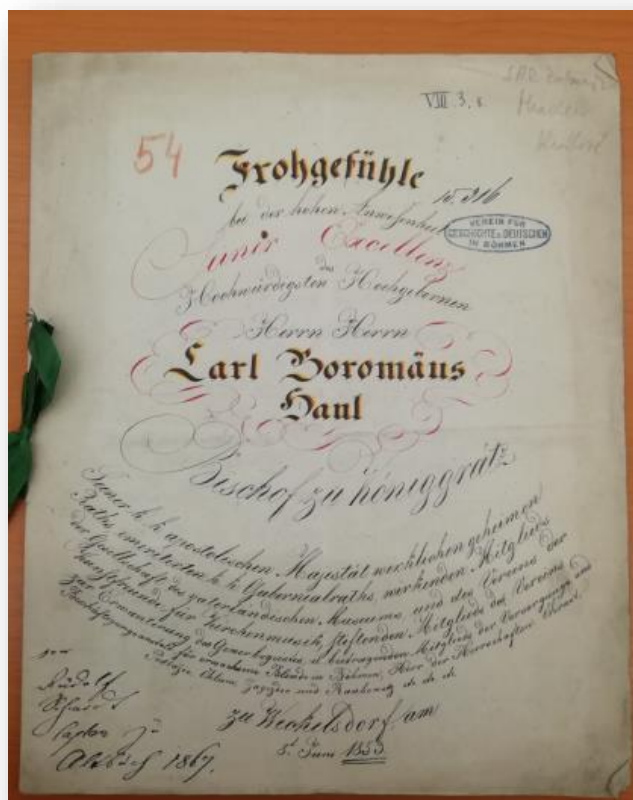 VIII. 3. 8
54
Frohgefühle
bei der hohen Anwesenheit
VEREIN FÜR
GESCHICHTE D. DEUTSCHEN
IN BÖHMEN
Seiner Excellenz
des
Hochwürdigsten Hochgebornen
Herrn Herrn
Carl Boromäus
Hanl
Bischof zu Königgrätz
Seiner k. k. apostolischen Majestät wirklichen geheimen
Raths, emeritirten k. k. Gubernialraths, wirkenden Mitglieds
der Gesellschaft des vaterländischen Museums und des Vereins der
Kunstfreunde für Kirchenmusik, stiftenden Mitglieds des Vereins
zur Ermunterung des Gewerbsgeistes, u. beitragenden Mitglieds der Versorgungs und
Beschäftigungsanstalt für erwachsene Blinde in Böhmen, Herr der Herrschaften Chrast,
Chlum und
zu Wekelsdorf am
Juni 1853
Rudolf
Caplan zu
1867.